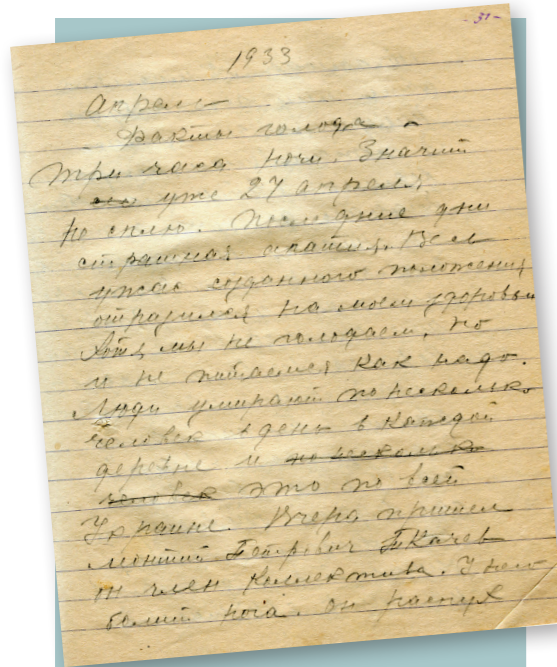 - 31 -
1933
Апрель
Факты голода -
Три часа ночи. Значит
уже 27 апреля,
не сплю. последние дни
страшная апатия. Весь
ужас созданного положения
отразился на моем здоровьи
Хотя мы не голодаем, но
и не питаемся как надо.
Люди умирают по несколько
человек в день в каждой
деревне и по несколько
человек это по всей
Украине. Вчера пришел
Петрович Ткачев
он член коллектива. У него
болит нога. он распух